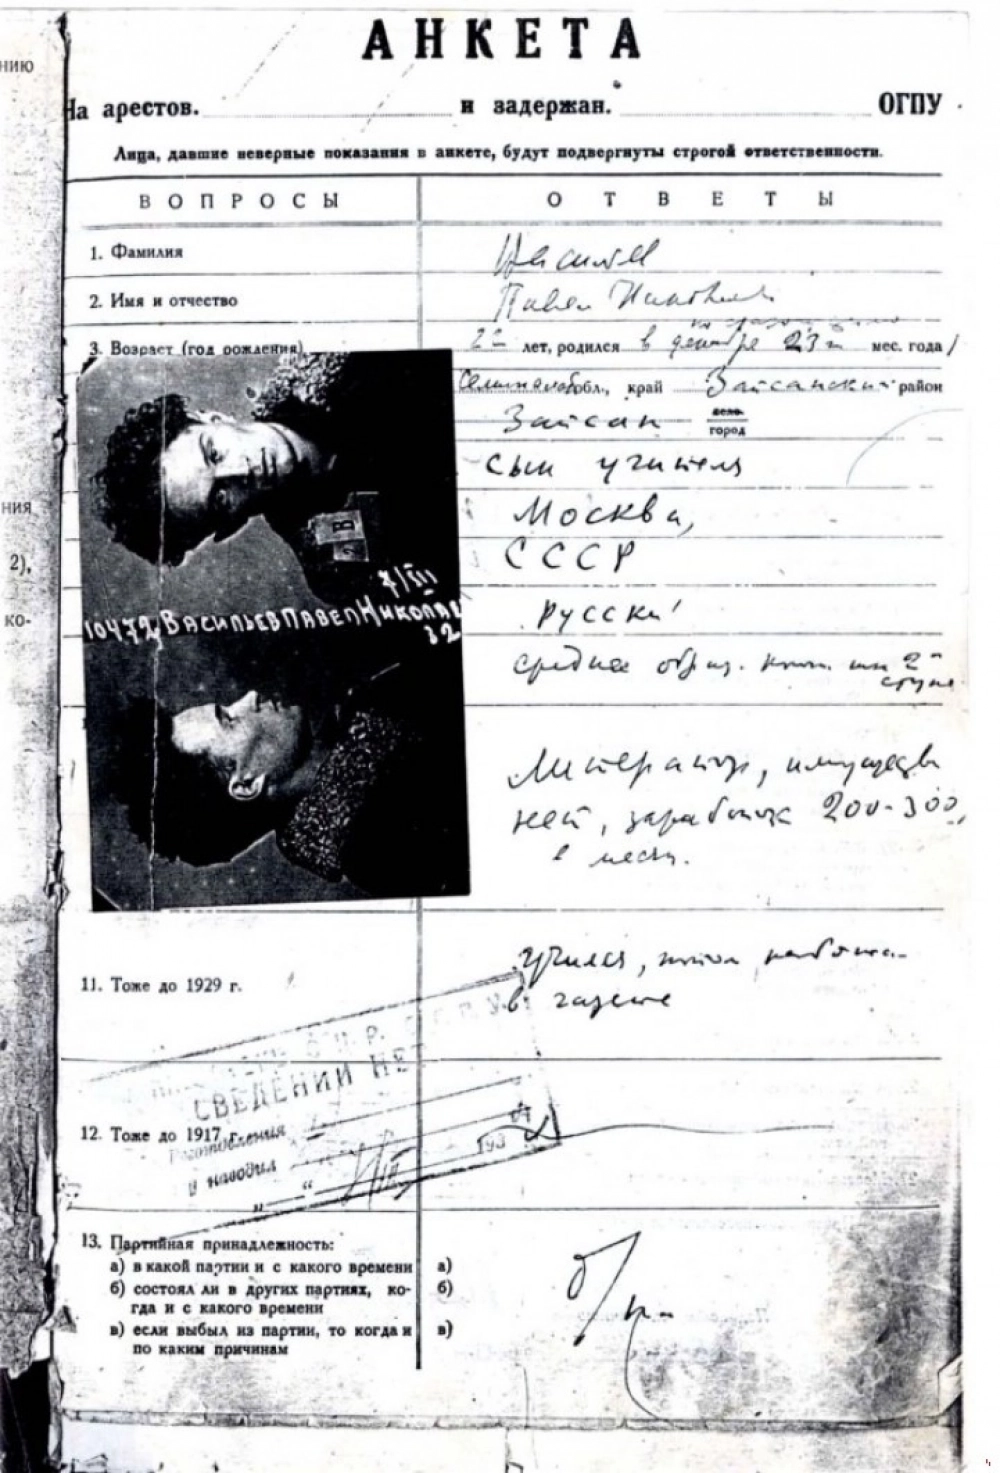 АНКЕТА
На арестов. и задержан. ОГПУ
Лица, давшие неверные показания в анкете, будут подвергнуты строгой ответственности.
ВОПРОСЫ ОТВЕТЫ
1. Фамилия Васильев
2. Имя и отчество Павел Николаевич
3. Возраст (год рождения) 22 лет, родился в декабре 23го мес. года
обл., край Зайсанский район
Зайсан село город
сын учителя
Москва,
СССР
Русский
среднее образ.
2й
Литератор, имущества
нет, заработок 200-300
в месяц.
7/III
10472 Васильев Павел Николае
32
2 В
11. Тоже до 1929 г. учился, потом работал
в газете
СВЕДЕНИЙ НЕТ
12. Тоже до 1917 г.
наводил
193
13. Партийная принадлежность:
а) в какой партии и с какого времени а)
б) состоял ли в других партиях, ко- б)
гда и с какого времени
в) если выбыл из партии, то когда и в)
по каким причинам
б/п
нию
ния
2),
ко-